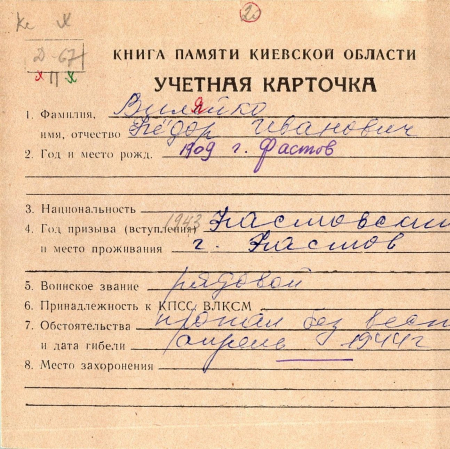 2.
Д-67
х П х
КНИГА ПАМЯТИ КИЕВСКОЙ ОБЛАСТИ
УЧЕТНАЯ КАРТОЧКА
1. Фамилия, Виляйко
имя, отчество Фёдор Иванович
2. Год и место рожд. 1909 г. Фастов
3. Национальность
4. Год призыва (вступления) 1943 Фастовским
и место проживания г. Фастов
5. Воинское звание рядовой
6. Принадлежность к КПСС, ВЛКСМ
7. Обстоятельства пропал без вест
и дата гибели апрель 1944г
8. Место захоронения